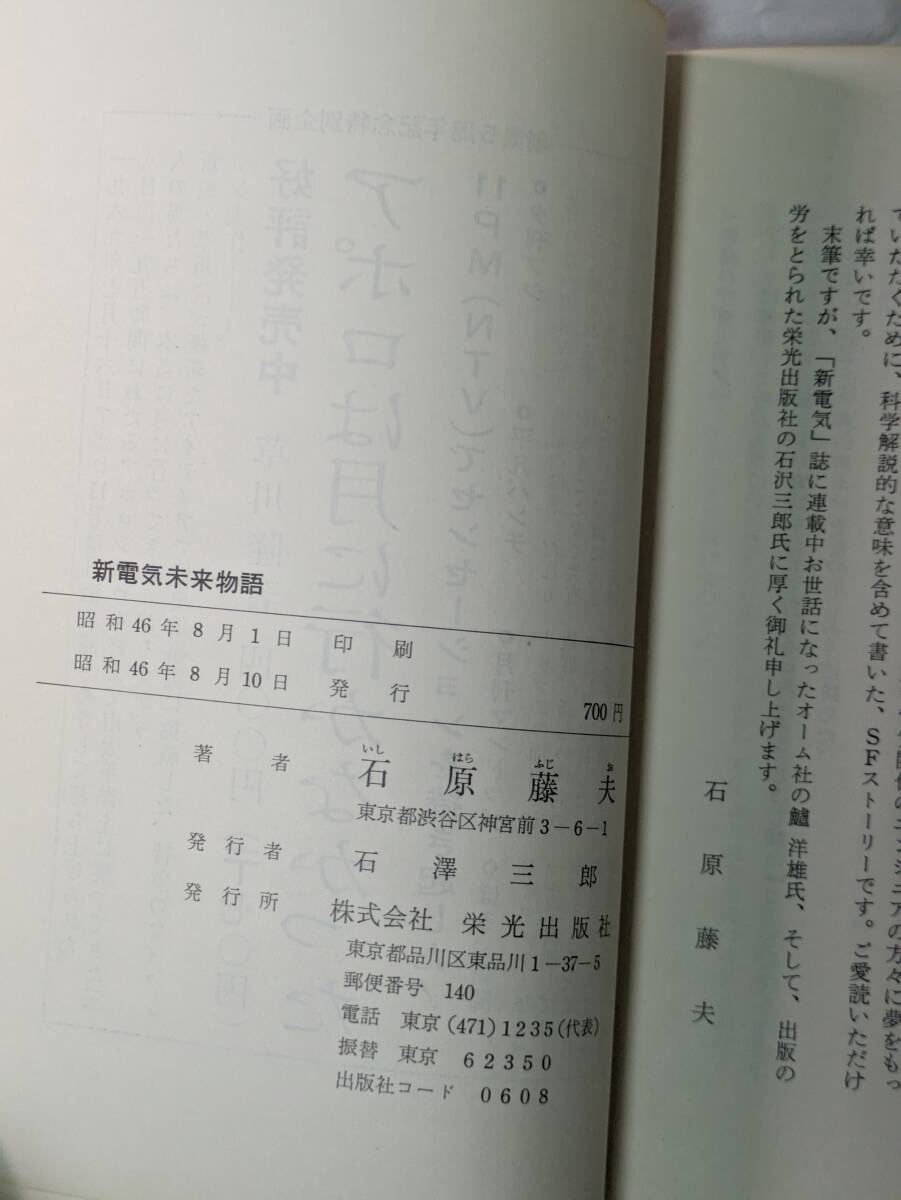 ていただくために、科学解説的な意味を含めて書いた、SFストーリーです。ご愛読いただけ
れば幸いです。
末筆ですが、「新電気」誌に連載中お世話になったオーム社の鱸 洋雄氏、そして、出版の
労をとられた栄光出版社の石沢三郎氏に厚く御礼申し上げます。
石原藤夫
新電気未来物語
昭和46年8月1日 印刷
昭和46年8月10日 発行
700円
著者 石原藤夫
いし はら ふじ お
東京都渋谷区神宮前3-6-1
発行者 石澤三郎
発行所 株式会社 栄光出版社
東京都品川区東品川1-37-5
郵便番号 140
電話 東京(471)1235(代表)
振替 東京 62350
出版社コード 0608